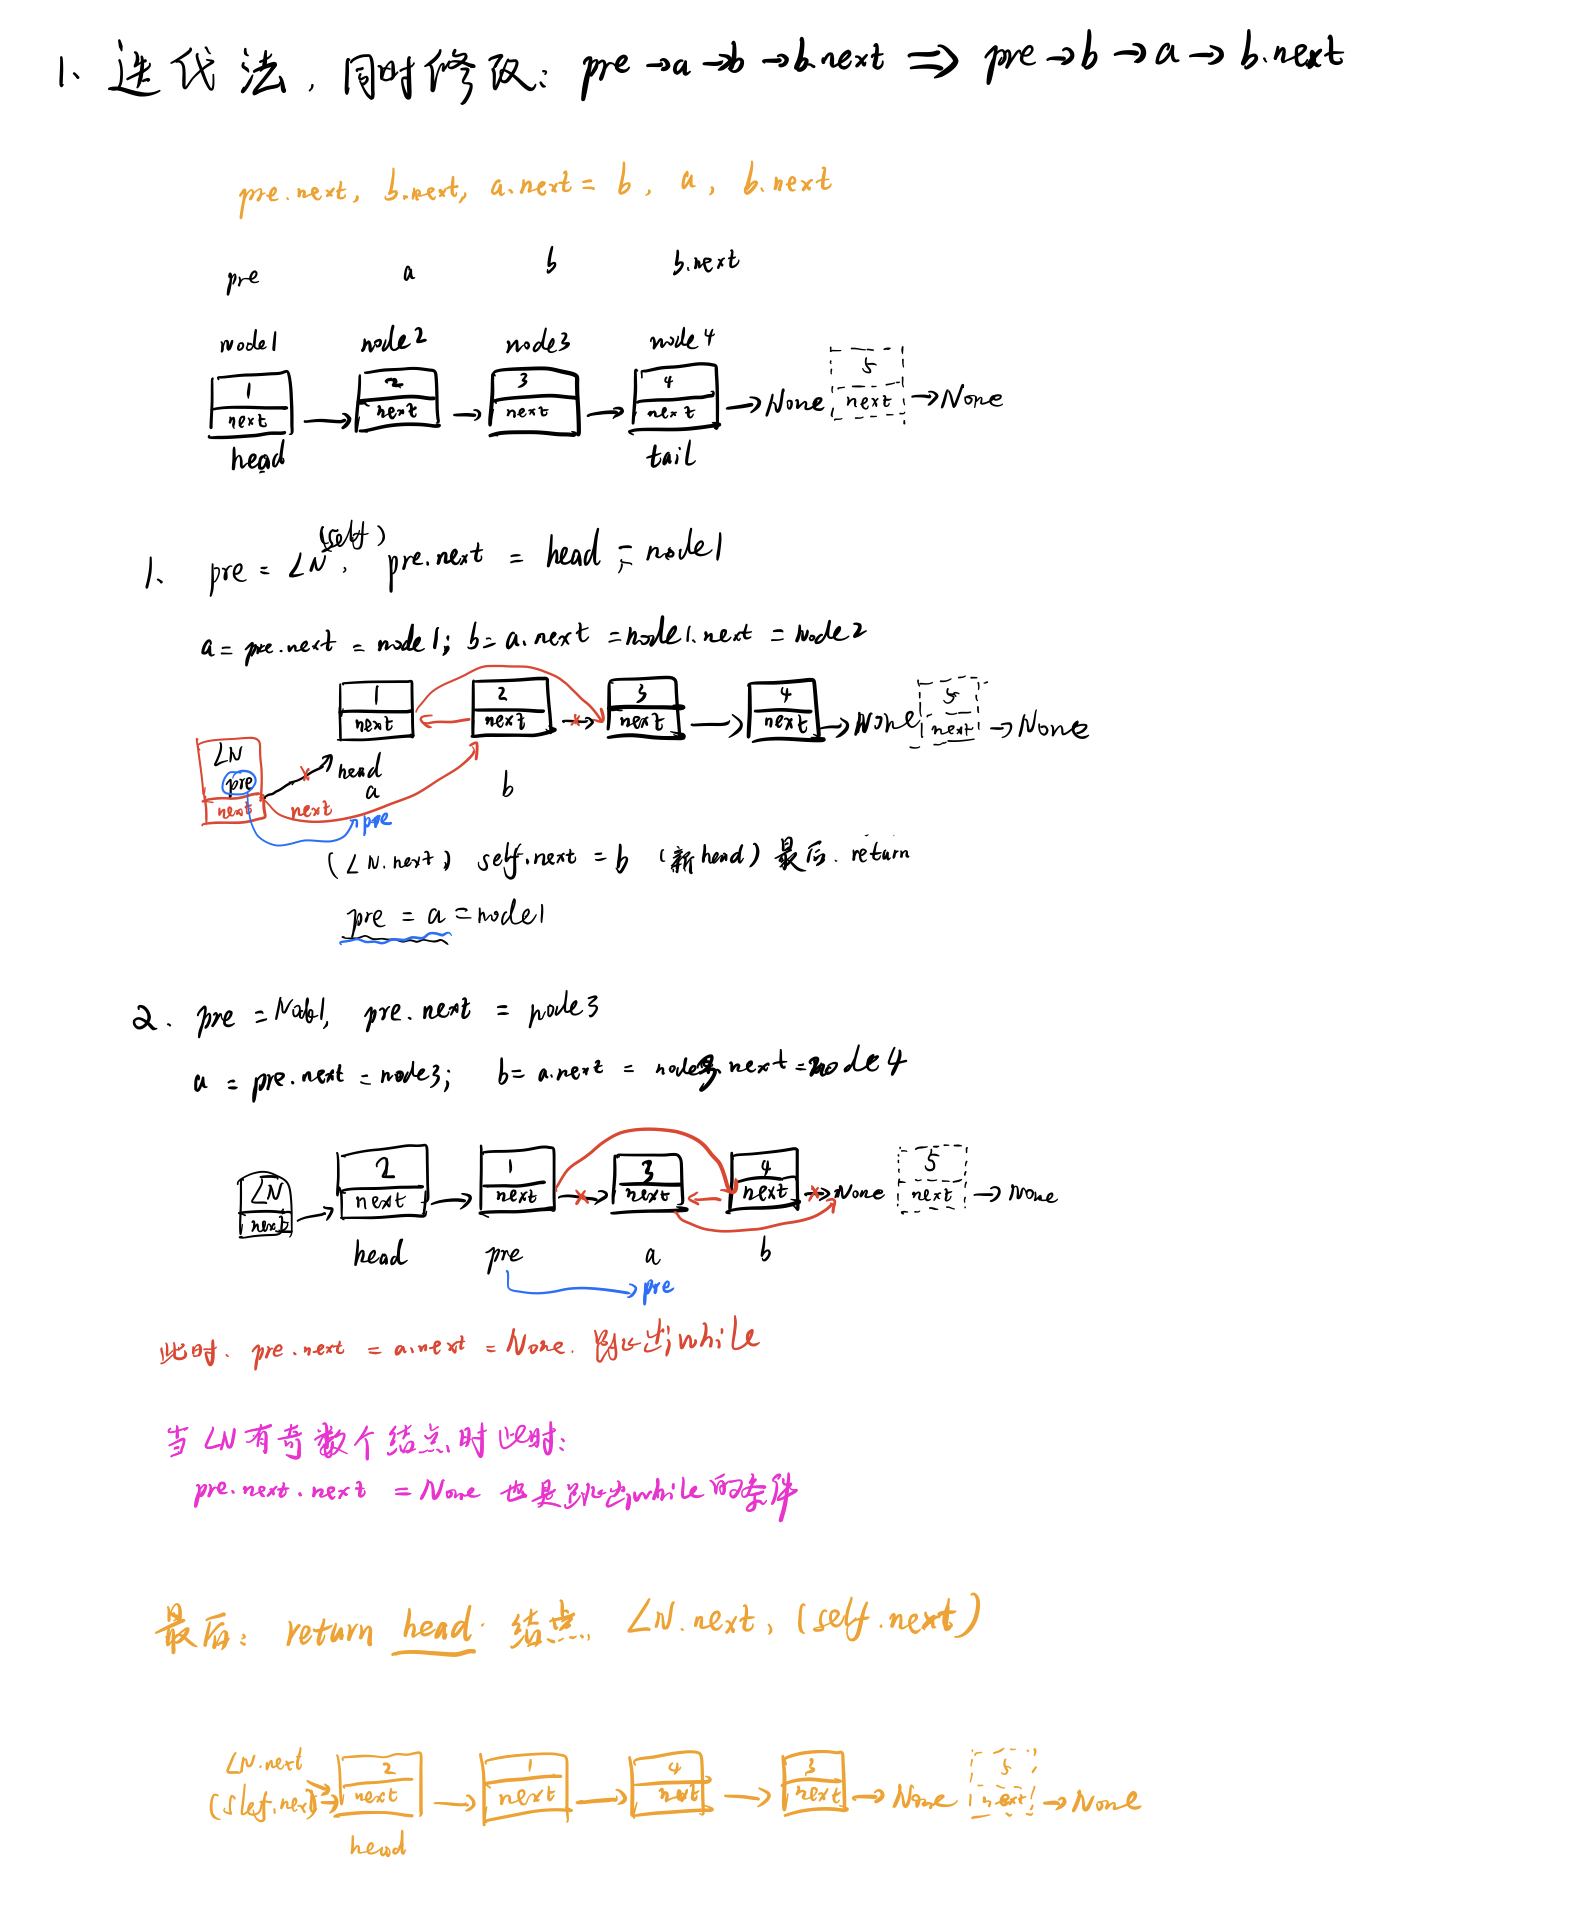 1、迭代法，同时修改：pre→a→b→b.next ⇒ pre→b→a→b.next
pre.next, b.next, a.next = b, a, b.next
pre a b b.next
node1 node2 node3 node4
1 2 3 4 5
next → next → next → next → None next → None
head tail
1、 pre = LN(self), pre.next = head = node1
a = pre.next = node1; b = a.next = node1.next = node2
1 2 3 4 5
next next next → next → None next → None
LN
pre head
a b
next next
pre
(LN.next) self.next = b (新head) 最后. return
pre = a = node1
2. pre = Node1, pre.next = node3
a = pre.next = node3; b = a.next = node3.next = node4
LN 2 1 3 4 5
next → next → next → next next → None next → None
head pre a b
pre
此时. pre.next = a.next = None. 跳出while
当LN有奇数个结点时此时:
pre.next.next = None 也是跳出while的条件
最后: return head 结点 LN.next, (self.next)
LN.next 2 1 4 3 5
(slef.next) → next → next → next → next → None next → None
head